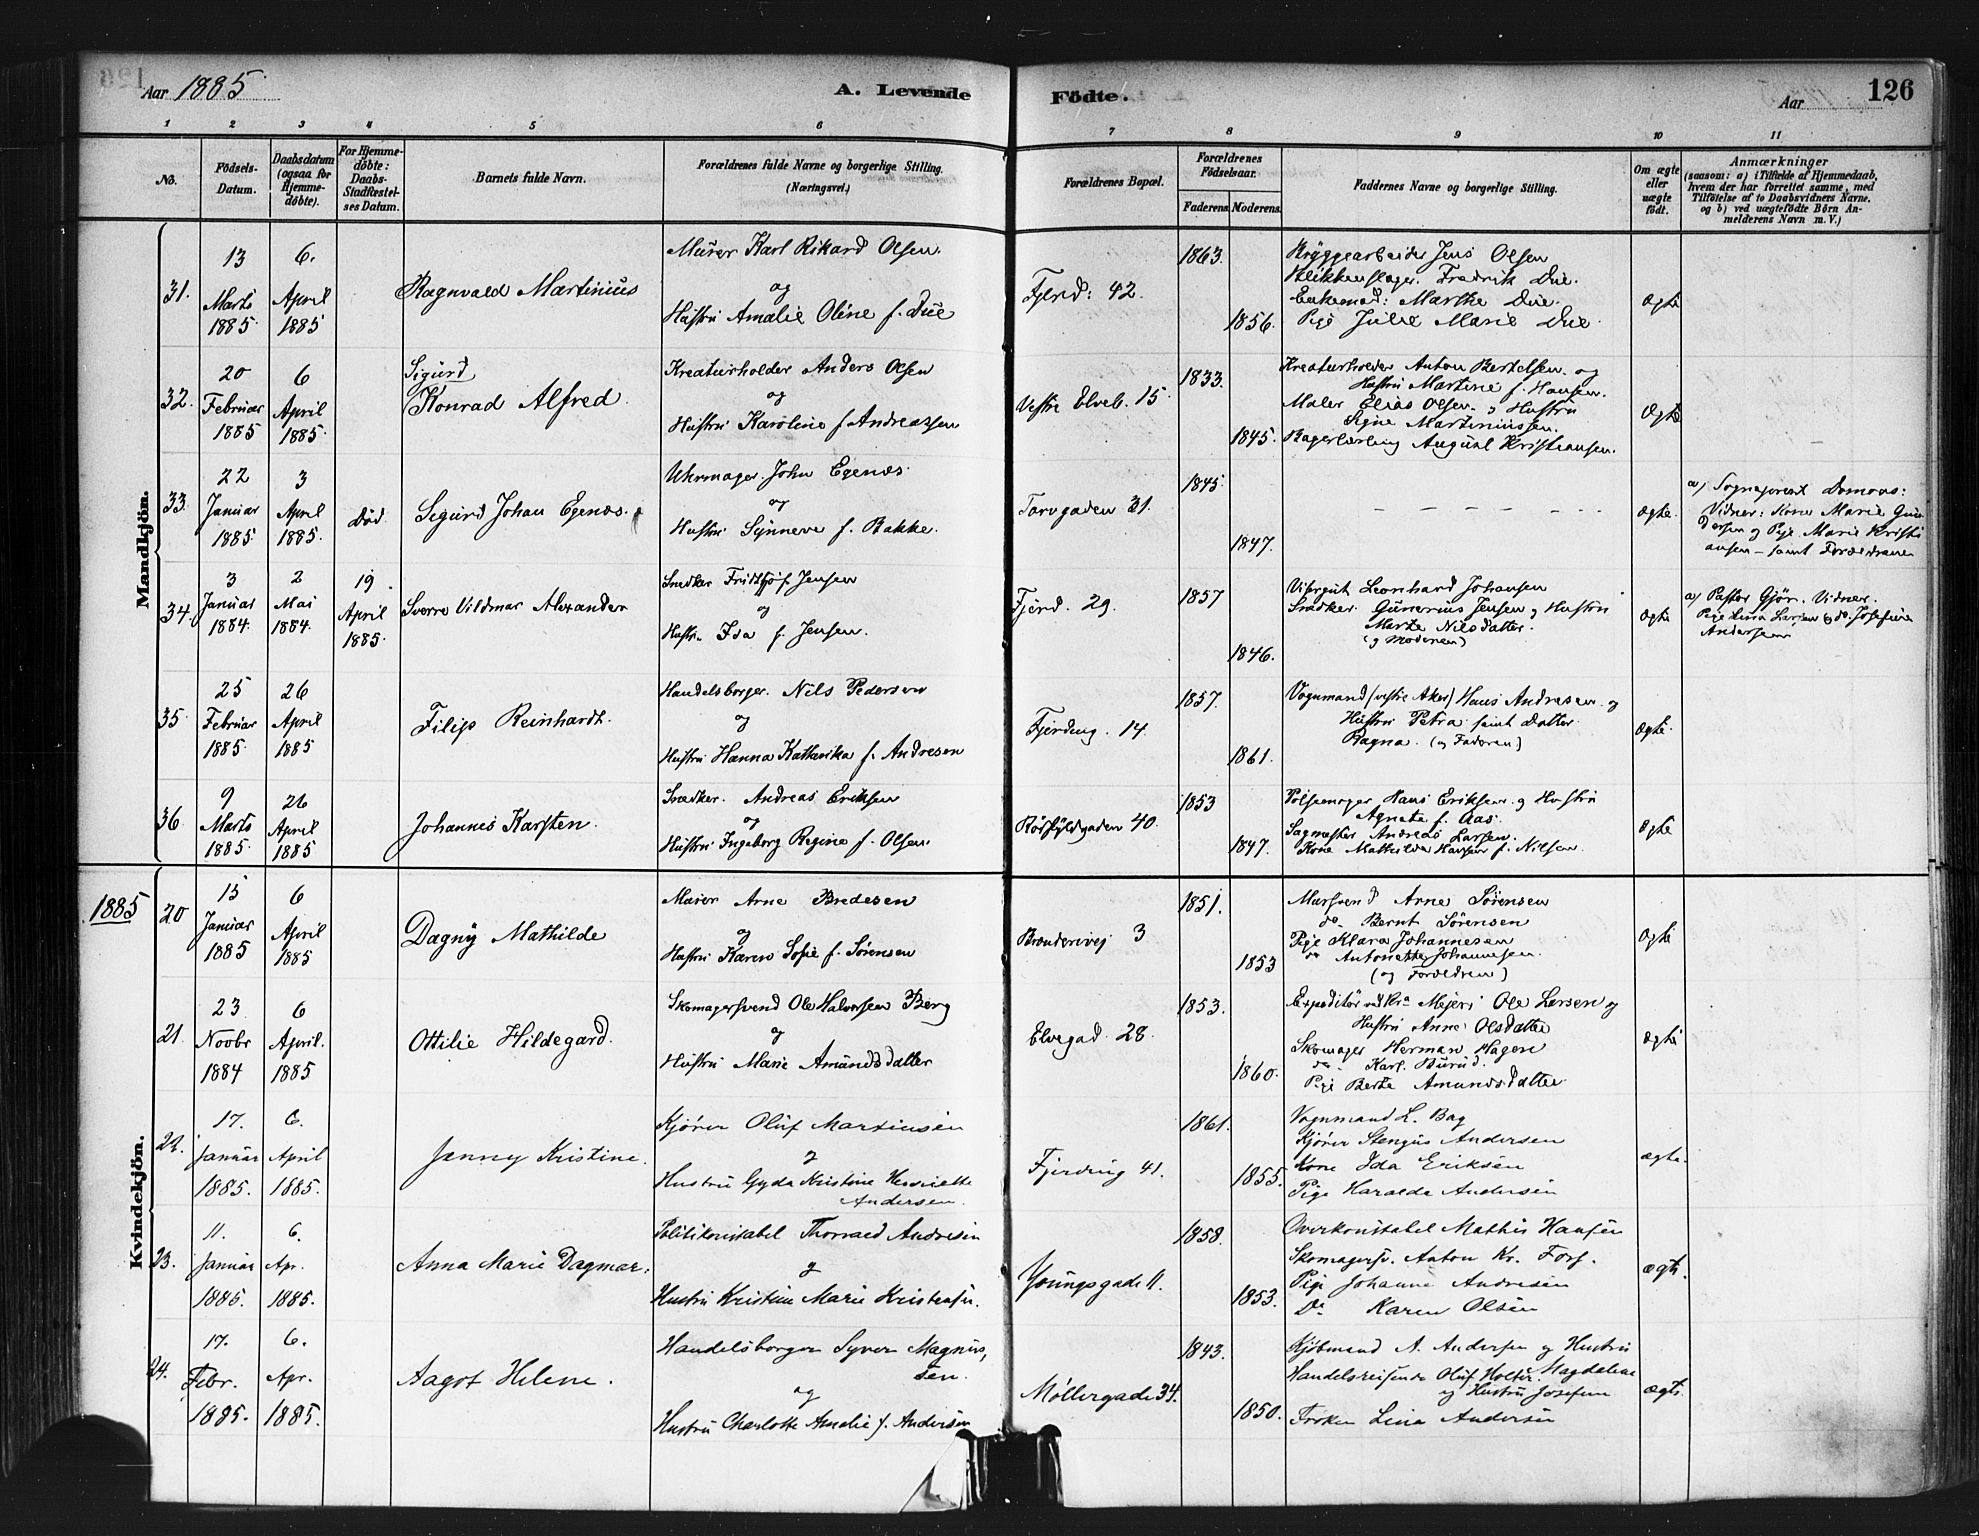 Aar 1885
A. Levende
Födte.
Aar
126
1 2 3 4 5 6 7 8 9 10 11
No.
Födsels-Datum.
Daabsdatum (ogsaa for Hjemme-döbte).
For Hjemme-döbte: Daabs-Stadfæstel-ses Datum.
Barnets fulde Navn.
Forældrenes fulde Navne og borgerlige Stilling. (Næringsvei.)
Forældrenes Bopæl.
Forældrenes Födselsaar.
Faderens. Moderens.
Faddernes Navne og borgerlige Stilling.
Om ægte eller uægte födt.
Anmærkninger
(saasom: a) i Tilfælde af Hjemmedaab, hvem der har forrettet samme, med Tilföielse af to Daabsvidners Navne. og b) ved uægtefödte Börn An-melderens Navn m. V.)
Mandkjön.
31. 13 Marts 1885. 6. April 1885 Ragnvald Martinius
Murer Karl Rikard Olsen.
og
Hustru Amalie Oline f. Due
Fjerd: 42. 1863. 1856.
Bryggearbeider Jens Olsen
Blikkenslager. Fredrik Due.
Enkemad: Marthe Due.
Pige Julie Marie Due.
Ægte
32. 20 Februar 1885 6 April 1885. Sigurd
Konrad Alfred.
Kreaturholder Anders Olsen
og
Hustru Karoline f. Andreassen
Vestre Elveb. 15. 1833. 1845.
Kreaturholder Anton Bertelsen og
Hustru Martine f. Hansen.
Maler Elias Olsen. og Hustru
Signe Martiniussen.
Bagerlærling August Kristiansen.
Ægte
33. 22 Januar 1885. 3 April 1885. Död. Sigurd Johan Egenæs.
Uhrmager John Egenæs.
og
Hustru Synneve f. Bakke.
Torvgaden 31. 1845. 1847.
Ægte.
a) Sogneprest Domaas:
Vidner: Kone Marie Gun
dersen og Pige Marie Kristi
ansen – samt Forældrene
34. 3 Januar 1884. 2 Mai 1884. 19 April 1885. Sverre Vildmar Alexander
Snedker Fridtjof Jensen
og
Hustru Ida f. Jensen.
Fjerd. 29. 1857 1846.
Visergut Leonhard Johansen
Snedker. Gunerius Jensen og Hustru
Marte Nilsdatter.
(og Moderen)
Ægte
a) Pastor Gjör. Vidner.
Pige Lina Larsen og do. Josefine
Andersen
35. 25 Februar 1885. 26 April 1885 Filip Reinhardt.
Handelsborger. Nils Pedersen
og
Hustru Hanna Katharika f. Andresen
Fjerding. 14. 1857. 1861.
Vognmand (vestre Aker) Hans Andresen og
Hustru Petra samt Datter
Ragna. (og Faderen)
Ægte.
36. 9 Marts 1885. 26 April 1885 Johannes Karsten.
Snedker. Andreas Eriksen
og
Hustru Ingeborg Regine f. Olsen.
40. 1853 1847.
Pölsemager Hans Eriksen og Hustru
Agnete f. Aas.
Sagmester Andreas Larsen.
Kone Mathilde Hansen f. Nilsen.
Ægte
1885
Kvindekjön.
20 15 Januar 1885 6 April 1885 Dagny Mathilde
Murer Arne Bredesen
og
Hustru Karen Sofie f. Sörensen
3 1851. 1853
Mursvend Arne Sörensen
do. Bernt Sörensen
Pige Klara Johannesen
do Antonette Johannesen.
(og Forældrene)
Ægte
21. 23 Novbr 1884 6 April. 1885 Ottilie Hildegard.
Skomagersvend Ole Halvorsen Berg
og
Hustru Marie Amundsdatter
Elvegad. 28. 1853. 1860.
Expeditör ved Kra Mejeri Ole Larsen og
Hustru Anne Olsdatter
Skomager Herman Hagen
do. Karl Burud.
Pige Berte Amundsdatter
Ægte
22. 17. Januar 1885. 6. April 1885. Jenny Kristine.
Kjörer Oluf Martinsen
og
Hustru Gyda Kristine Henriette
Andersen.
Fjerding 41. 1861. 1855.
Vognmand L. Bag
Kjörer Stengus Andersen
Kone Ida Eriksen
Pige Haralda Andersen
ægte.
23. 11. Januar 1885. 6. Apr. 1885. Anna Marie Dagmar.
Politikonstabel Thorvald Andresen
og
Hustru Kristine Marie Kristensen.
Youngsgade 11. 1858. 1853.
Overkonstabel Mathis Hansen
Skomagersv. Anton Kr. Fors.
Pige Johanne Andresen
Do Karen Olsen
ægte.
24. 17. Febr. 1885. 6. Apr. 1885. Aagot Helene.
Handelsborger Syver Magnus,
sen.
og
Hustru Charlotte Amalie f. Andersen
Möllergade 34. 1843. 1850.
Kjöbmand A. Andersen og Hustru
Magdalene
Handelsreisende Oluf Holter
og Hustru Josefine
Fröken Lina Andersen
ægte.